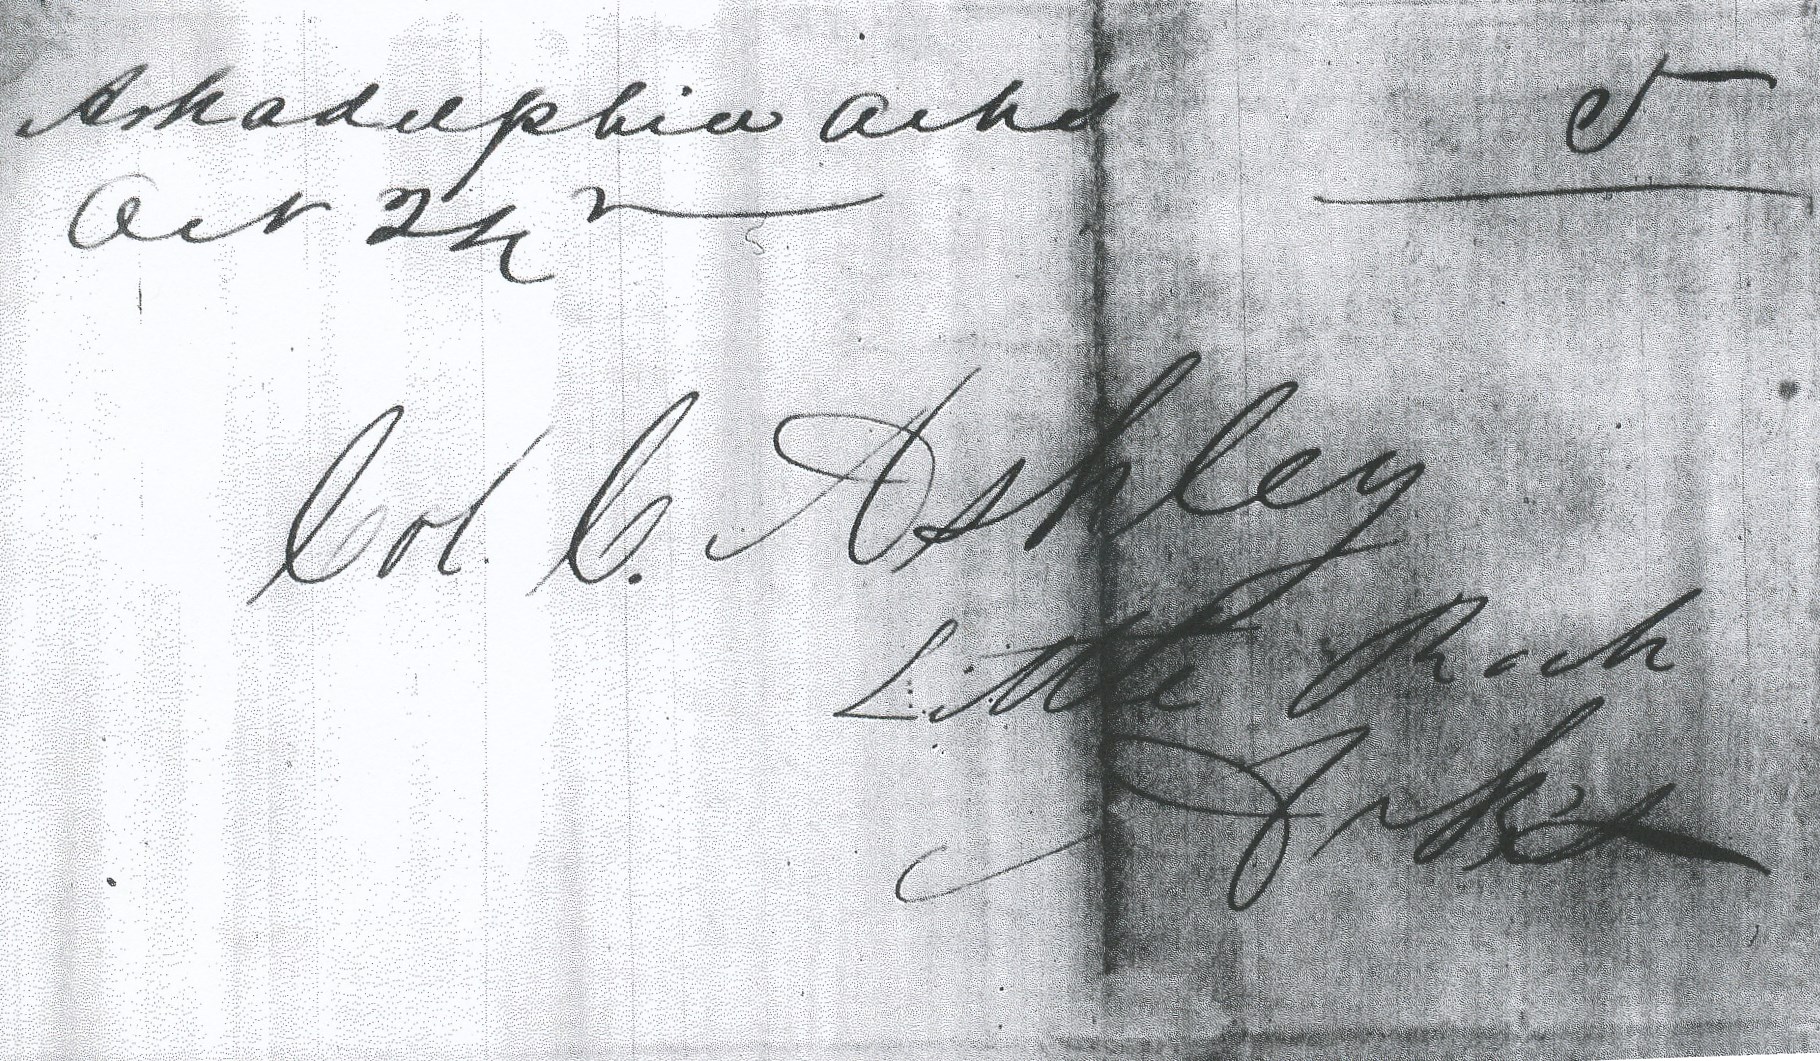 Arkadelphia Arks 5
Oct 24
Col. C. Ashley
Little Rock
Arks